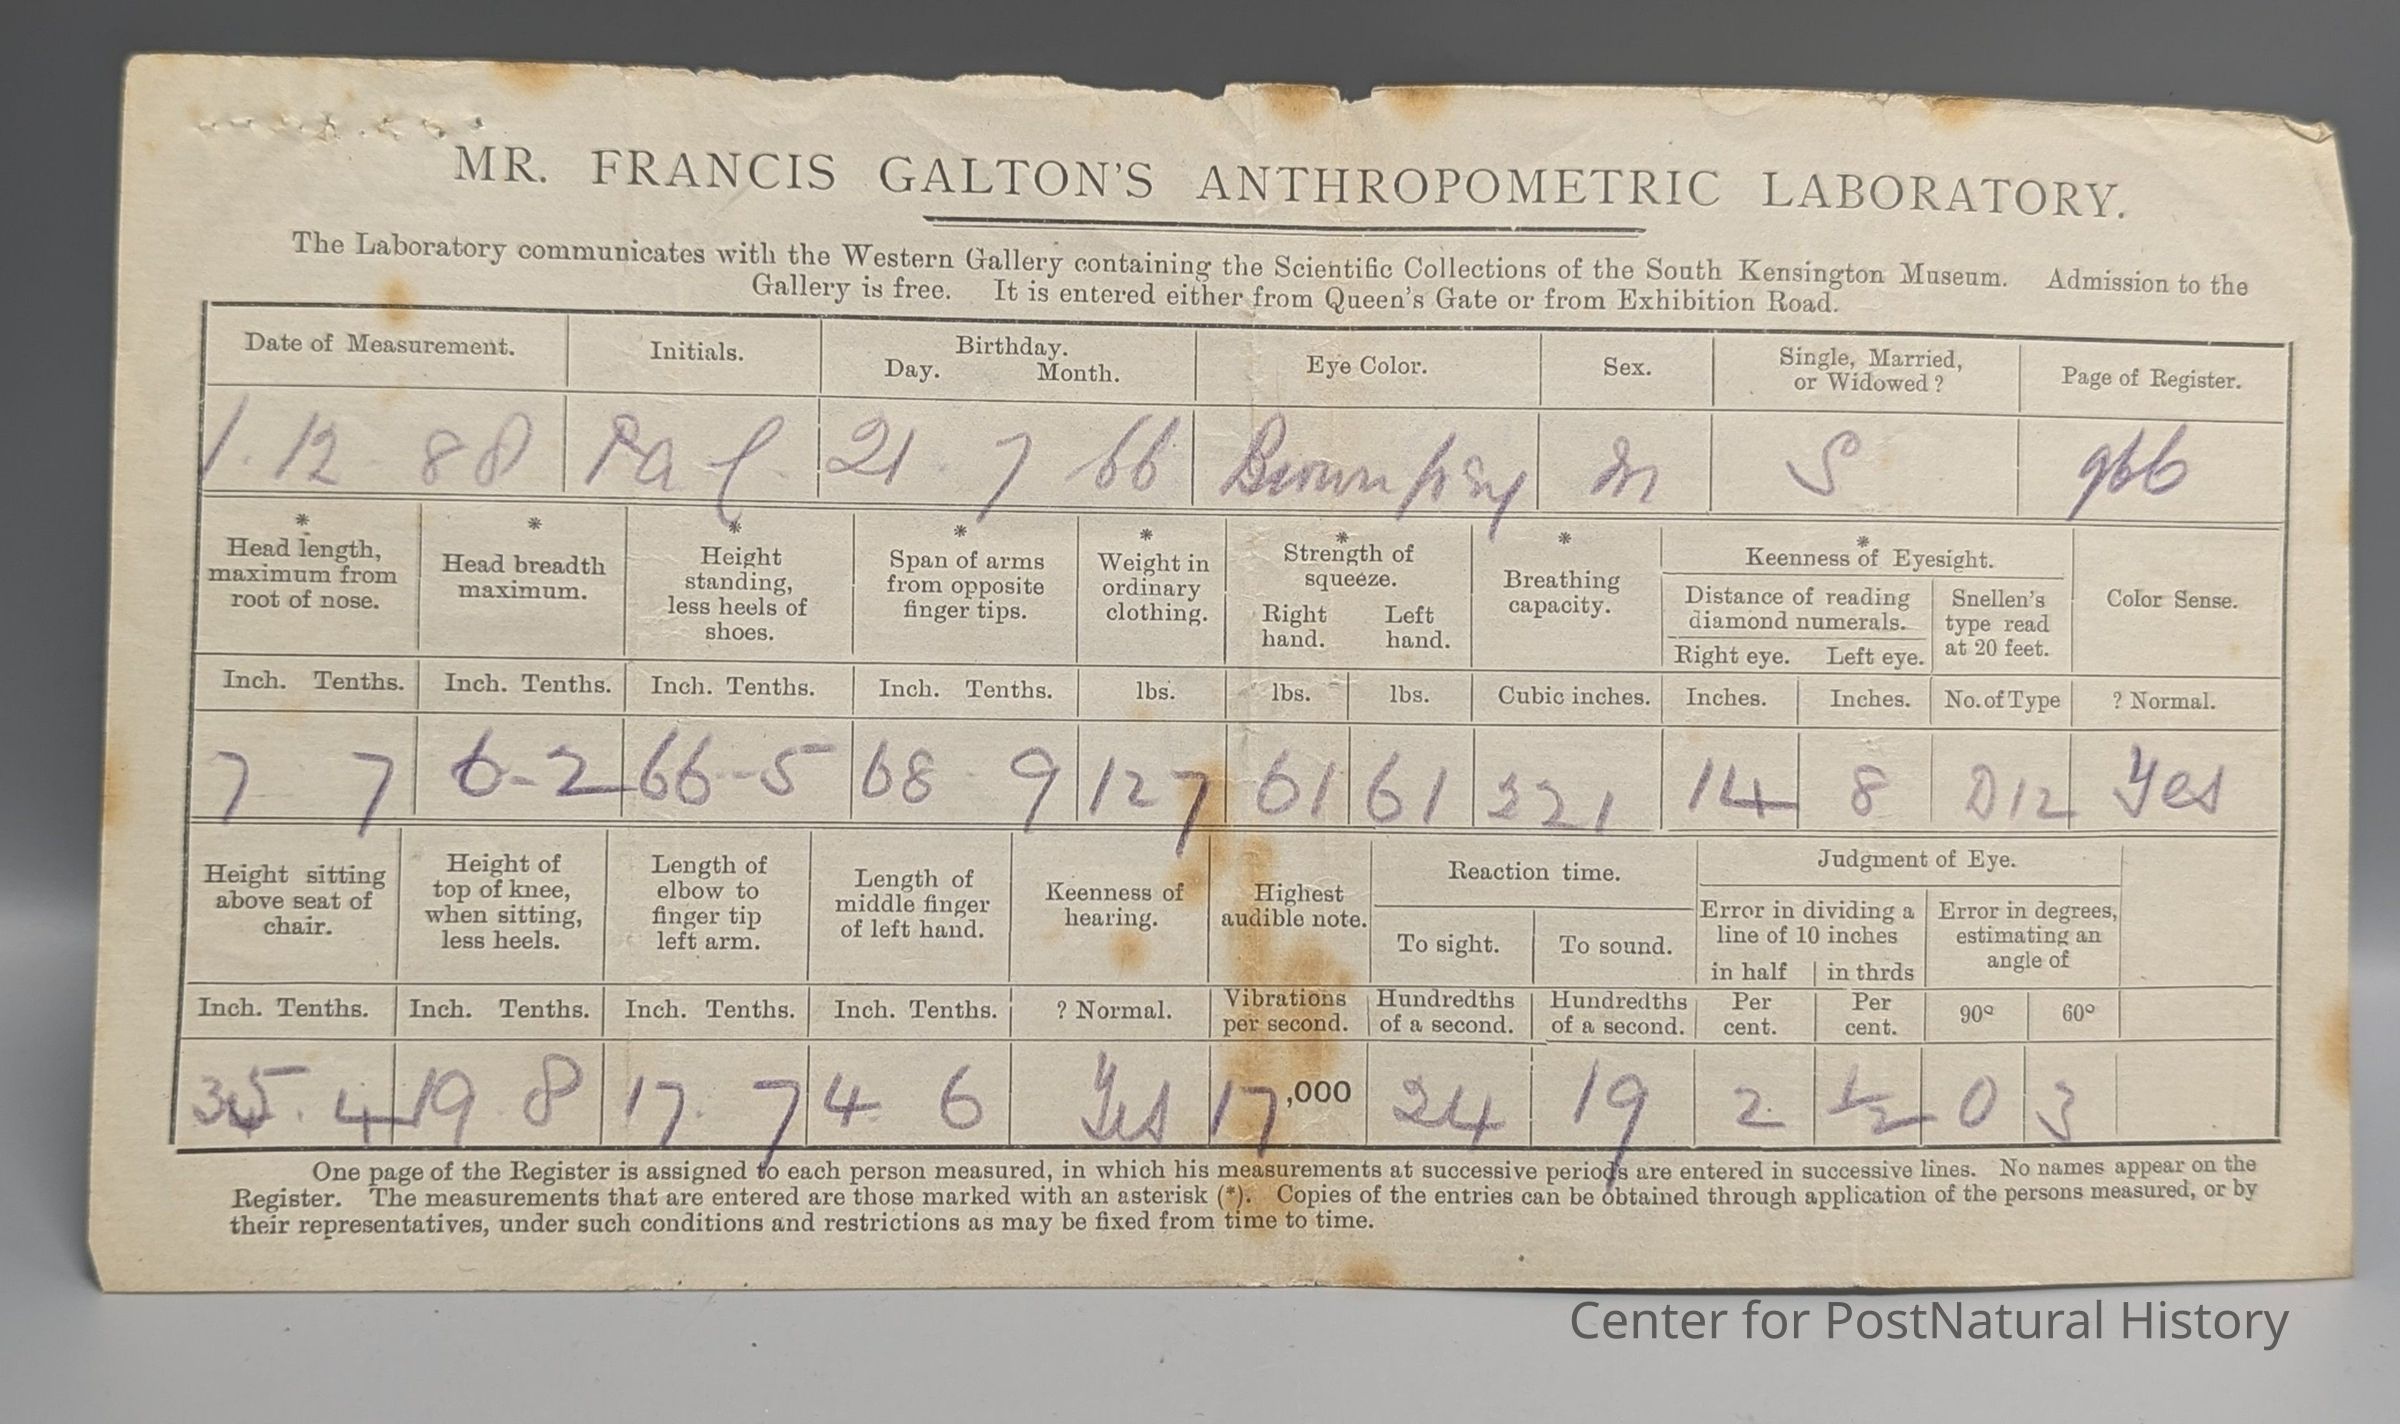 MR. FRANCIS GALTON'S ANTHROPOMETRIC LABORATORY.
The Laboratory communicates with the Western Gallery containing the Scientific Collections of the South Kensington Museum. Admission to the
Gallery is free. It is entered either from Queen's Gate or from Exhibition Road.
Date of Measurement. Initials. Birthday. Day. Month. Eye Color. Sex. Single, Married, or Widowed? Page of Register.
1. 12 88 21 7 66 Brown M S 966
* Head length, maximum from root of nose. * Head breadth maximum. * Height standing, less heels of shoes. * Span of arms from opposite finger tips. * Weight in ordinary clothing. * Strength of squeeze. Right hand. Left hand. * Breathing capacity. * Keenness of Eyesight. Distance of reading diamond numerals. Right eye. Left eye. Snellen's type read at 20 feet. Color Sense.
Inch. Tenths. Inch. Tenths. Inch. Tenths. Inch. Tenths. lbs. lbs. lbs. Cubic inches. Inches. Inches. No. of Type ? Normal.
7 7 6-2 66-5 68 9 127 61 61 221 14 8 D12 Yes
Height sitting above seat of chair. Height of top of knee, when sitting, less heels. Length of elbow to finger tip left arm. Length of middle finger of left hand. Keenness of hearing. Highest audible note. Reaction time. To sight. To sound. Judgment of Eye. Error in dividing a line of 10 inches in half in thrds Error in degrees, estimating an angle of
Inch. Tenths. Inch. Tenths. Inch. Tenths. Inch. Tenths. ? Normal. Vibrations per second. Hundredths of a second. Hundredths of a second. Per cent. Per cent. 90° 60°
35. 4 19 8 17. 7 4 6 Yes 17,000 24 19 2 ½ 0 3
One page of the Register is assigned to each person measured, in which his measurements at successive periods are entered in successive lines. No names appear on the
Register. The measurements that are entered are those marked with an asterisk (*). Copies of the entries can be obtained through application of the persons measured, or by
their representatives, under such conditions and restrictions as may be fixed from time to time.
Center for PostNatural History